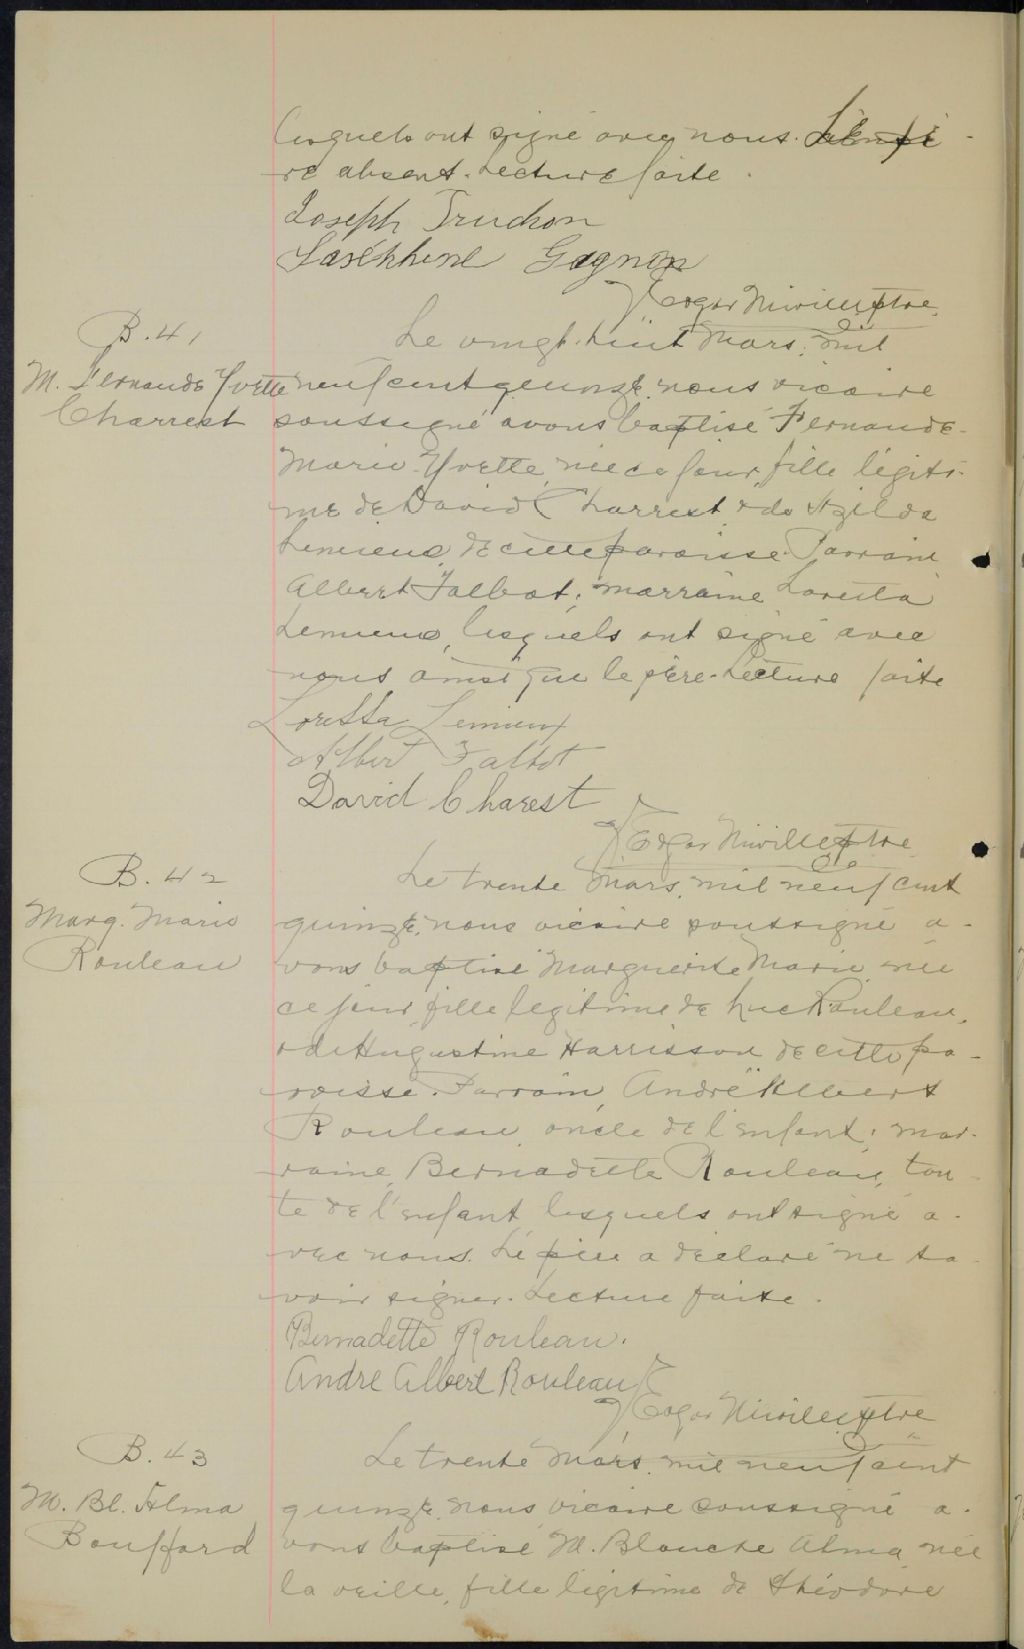 lesquels ont signé avec nous. Le pè-
re absent. Lecture faite.
Joseph Truchon
Joséphine Gagnon
J. Edgar Miville, ptre
B. 41
M. Fernande Yvette
Charrest
Le vingt-huit Mars, mil
neuf cent quinze, nous vicaire
soussigné avons baptisé Fernande-
Marie-Yvette, née ce jour, fille légiti-
me de David Charrest & de Azilda
Lemieux, de cette paroisse. Parrain
Albert Talbot; marraine Loretta
Lemieux, lesquels ont signé avec
nous ainsi que le père. Lecture faite
Loretta Lemieux
Albert Talbot
David Charest
J. Edgar Miville, ptre
B. 42
Marg. Marie
Rouleau
Le trente Mars, mil neuf cent
quinze, nous vicaire soussigné a-
vons baptisé Marguerite Marie née
ce jour, fille legitime de Luc Rouleau,
& de Augustine Harrisson de cette pa-
roisse. Parrain, André Albert
Rouleau, oncle de l'enfant; mar-
raine, Bernadette Rouleau, tan-
te de l'enfant lesquels ont signé a-
vec nous. Le père a déclaré ne sa-
voir signer. Lecture faite.
Bernadette Rouleau.
André Albert Rouleau
J. Edgar Miville, ptre
B. 43
M. Bl. Alma
Bouffard
Le trente Mars, mil neuf cent
quinze, nous vicaire soussigné a-
vons baptisé M. Blanche Alma, née
la veille, fille légitime de Théodore